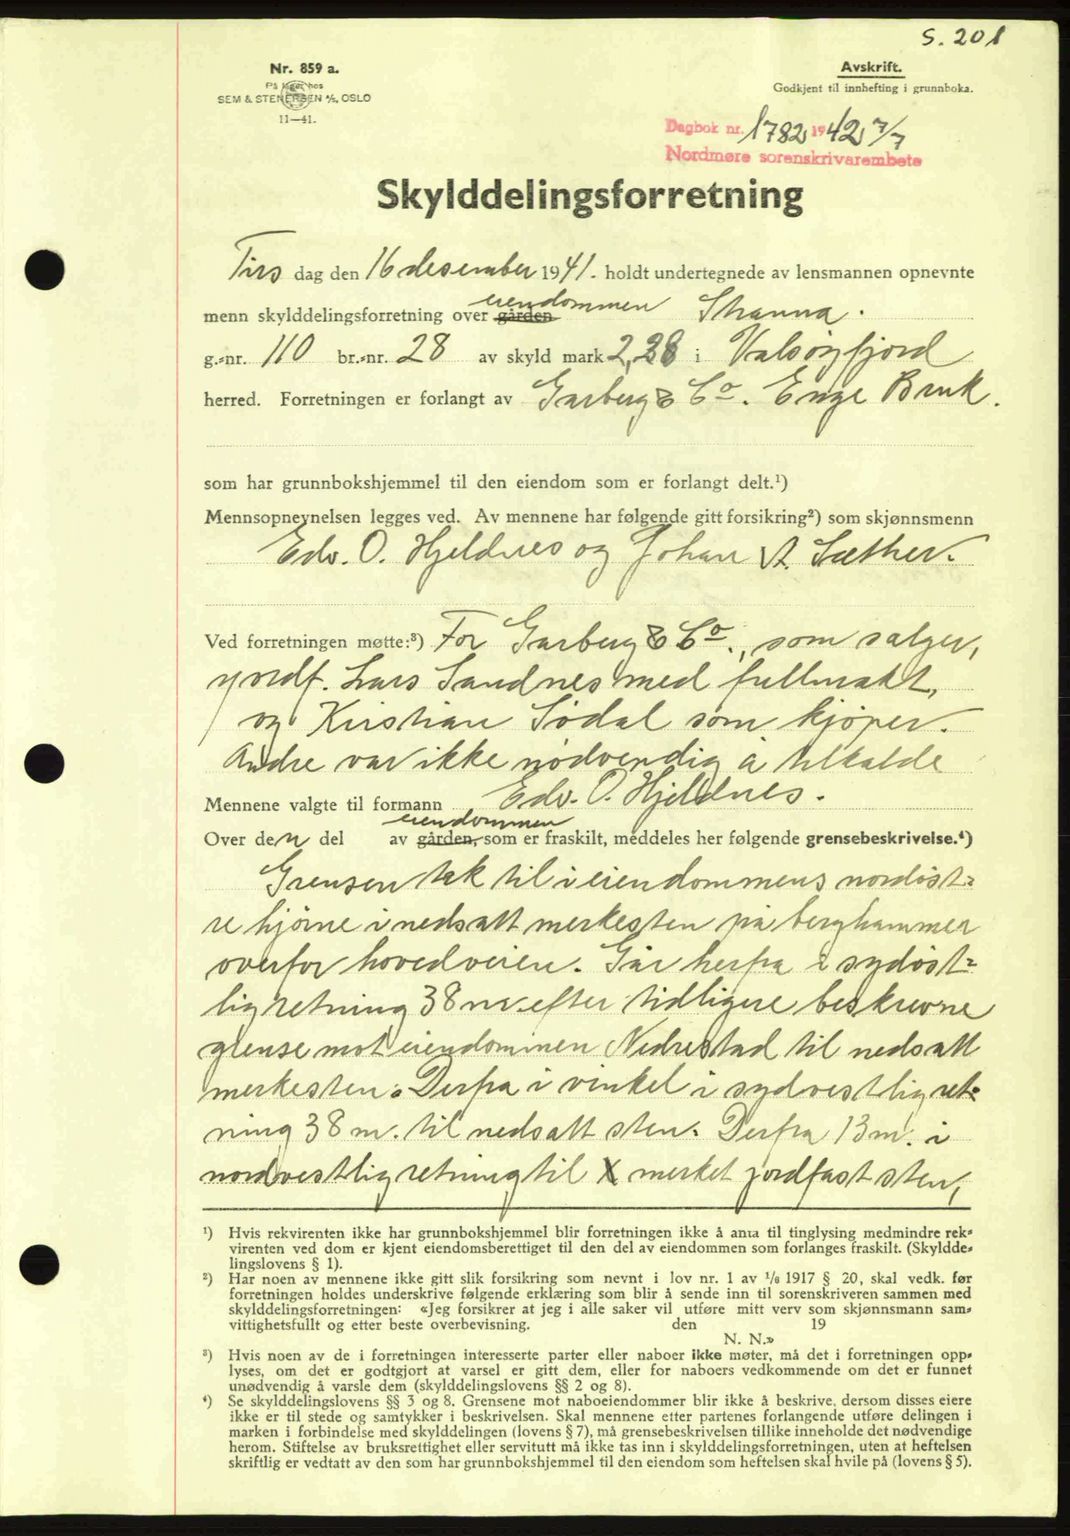 S. 201
Nr. 859 a.
På lager hos
SEM & STENERSEN A/S, OSLO
11—41.
Avskrift.
Godkjent til innhefting i grunnboka.
Dagbok nr. 1782 1942 7/7
Nordmøre sorenskrivarembete
Skylddelingsforretning
Tirs dag den 16 desember 1941. holdt undertegnede av lensmannen opnevnte
eiendommen
menn skylddelingsforretning over gården Stranna.
g.-nr. 110 br.-nr. 28 av skyld mark 2,28 i Valsøyfjord
herred. Forretningen er forlangt av Garberg & Co. Enge Bruk.
som har grunnbokshjemmel til den eiendom som er forlangt delt.¹)
Mennsopnevnelsen legges ved. Av mennene har følgende gitt forsikring²) som skjønnsmenn
Edv. O. Hjeldnes og Johan A. Sæther.
Ved forretningen møtte:³) For Garberg & Co., som selger,
Lars Sandnes med fullmakt,
og Kristian Sødal som kjøper.
Andre var ikke nødvendig å tilkalde
Mennene valgte til formann Edv. O. Hjeldnes.
eiendommen
Over den del av gården, som er fraskilt, meddeles her følgende grensebeskrivelse.⁴)
Grensen tok til i eiendommens nordøst-
re hjørne i nedsatt merkesten på berghammer
overfor hovedveien. Går herfra i sydøst-
lig retning 38 m. efter tidligere beskrevne
grense mot eiendommen Nedrestad til nedsatt
merkesten. Derfra i vinkel i sydvestlig ret-
ning 38 m. til nedsatt sten. Derfra 13 m. i
nordvestlig retning til X merket jordfast sten,
¹) Hvis rekvirenten ikke har grunnbokshjemmel blir forretningen ikke å anta til tinglysing medmindre rek-
virenten ved dom er kjent eiendomsberettiget til den del av eiendommen som forlanges fraskilt. (Skyldde-
lingslovens § 1).
²) Har noen av mennene ikke gitt slik forsikring som nevnt i lov nr. 1 av 1/6 1917 § 20, skal vedk. før
forretningen holdes underskrive følgende erklæring som blir å sende inn til sorenskriveren sammen med
skylddelingsforretningen: «Jeg forsikrer at jeg i alle saker vil utføre mitt verv som skjønnsmann sam-
vittighetsfullt og etter beste overbevisning. den 19
N. N.»
³) Hvis noen av de i forretningen interesserte parter eller naboer ikke møter, må det i forretningen opp-
lyses, om det er godtgjort at varsel er gitt dem, eller for naboers vedkommende om det er funnet
unødvendig å varsle dem (skylddelingslovens §§ 2 og 8).
⁴) Se skylddelingslovens §§ 3 og 8. Grensene mot naboeiendommer blir ikke å beskrive, dersom disses eiere
ikke er til stede og samtykker i beskrivelsen. Skal mennene etter partenes forlangende utføre delingen i
marken i forbindelse med skylddelingen (lovens § 7), må grensebeskrivelsen tillike inneholde det nødvendige
herom. Stiftelse av bruksrettighet eller servitutt må ikke tas inn i skylddelingsforretningen, uten at heftelsen
skriftlig er vedtatt av den som har grunnbokshjemmel til den eiendom som heftelsen skal hvile på (lovens § 5).